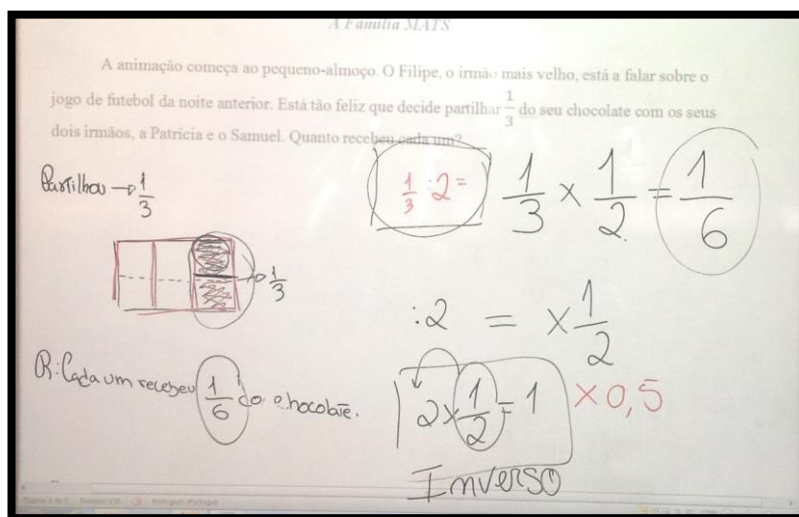 A Família MATS
A animação começa ao pequeno-almoço. O Filipe, o irmão mais velho, está a falar sobre o
jogo de futebol da noite anterior. Está tão feliz que decide partilhar 1/3 do seu chocolate com os seus
dois irmãos, a Patrícia e o Samuel. Quanto recebeu cada um?
Partilhou → 1/3
→ 1/3
R: Cada um recebeu 1/6 do chocolate.
1/3 : 2 = 1/3 × 1/2 = 1/6
: 2 = × 1/2
2 × 1/2 = 1 × 0,5
Inverso
Português (Portugal)